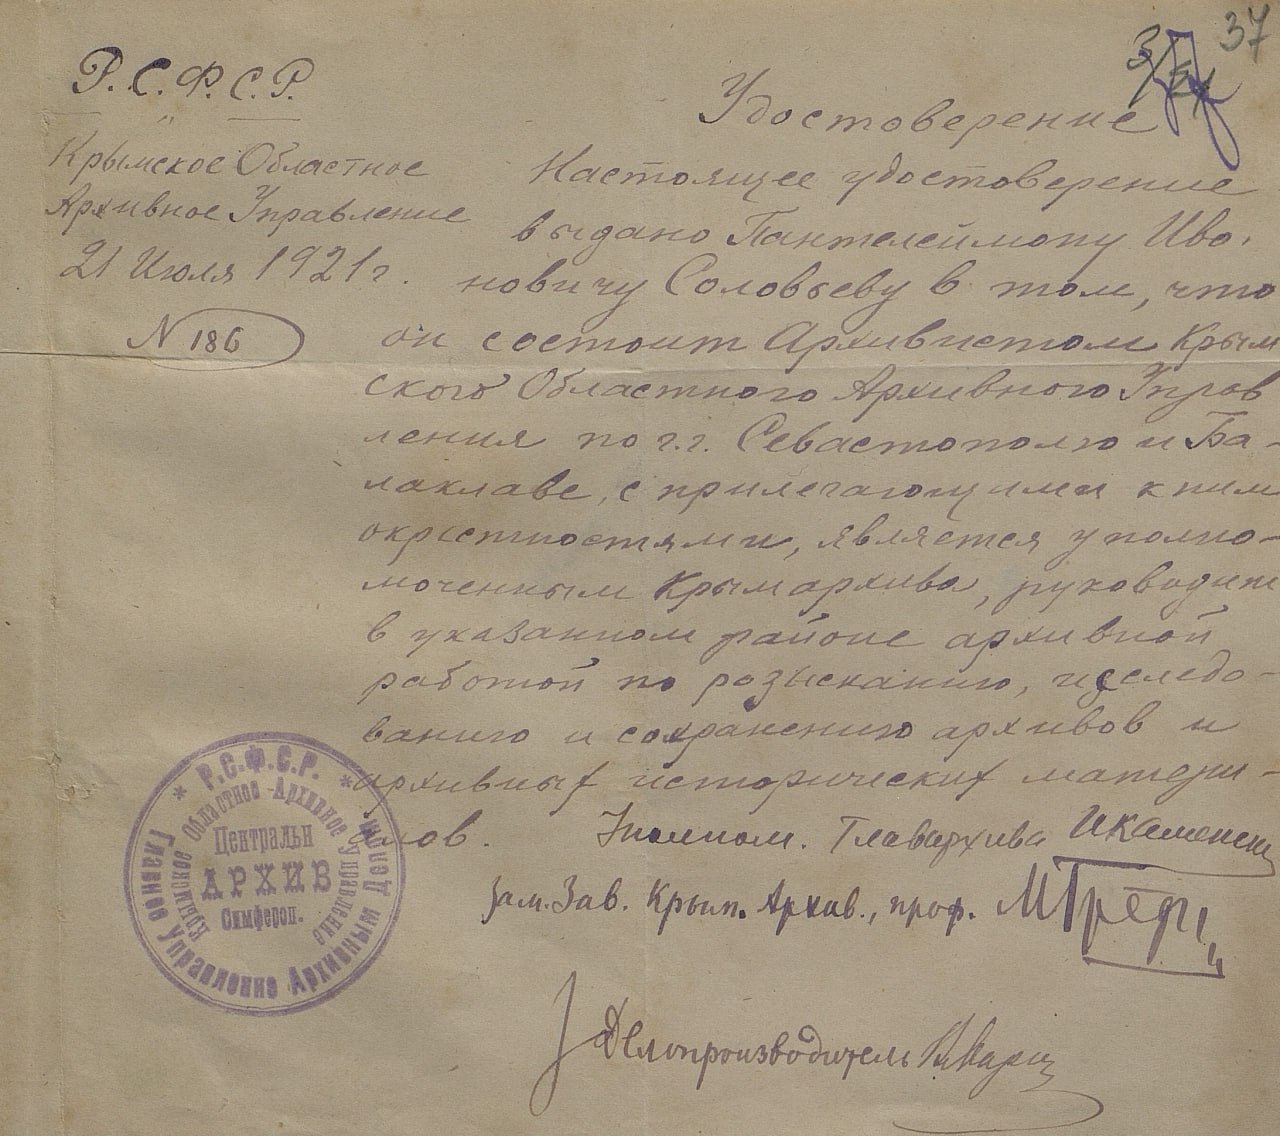 37
Р.С.Ф.С.Р.
Крымское Областное
Архивное Управление
21 Июля 1921 г.
N 186
Удостоверение
Настоящее удостоверение
выдано Пантелеймону Ива-
новичу Соловьеву в том, что
он состоит Архивистом Крым
ского Областного Архивного Управ
ления по г.г. Севастополю и Ба-
лаклаве, с прилегающими к ним
окрестностями, является уполно-
моченным Крымархива, руководит
в указанном районе архивной
работой по розысканию, исследо-
ванию и сохранению архивов и
архивных исторических матери-
алов.
Уполном. Главархива
Зам. Зав. Крым. Архив., проф.
Делопроизводитель
* Р.С.Ф.С.Р. *
Главное Управление Архивным Делом
Крымское Областное Архивное Управление
Центральн
АРХИВ
Симфероп.